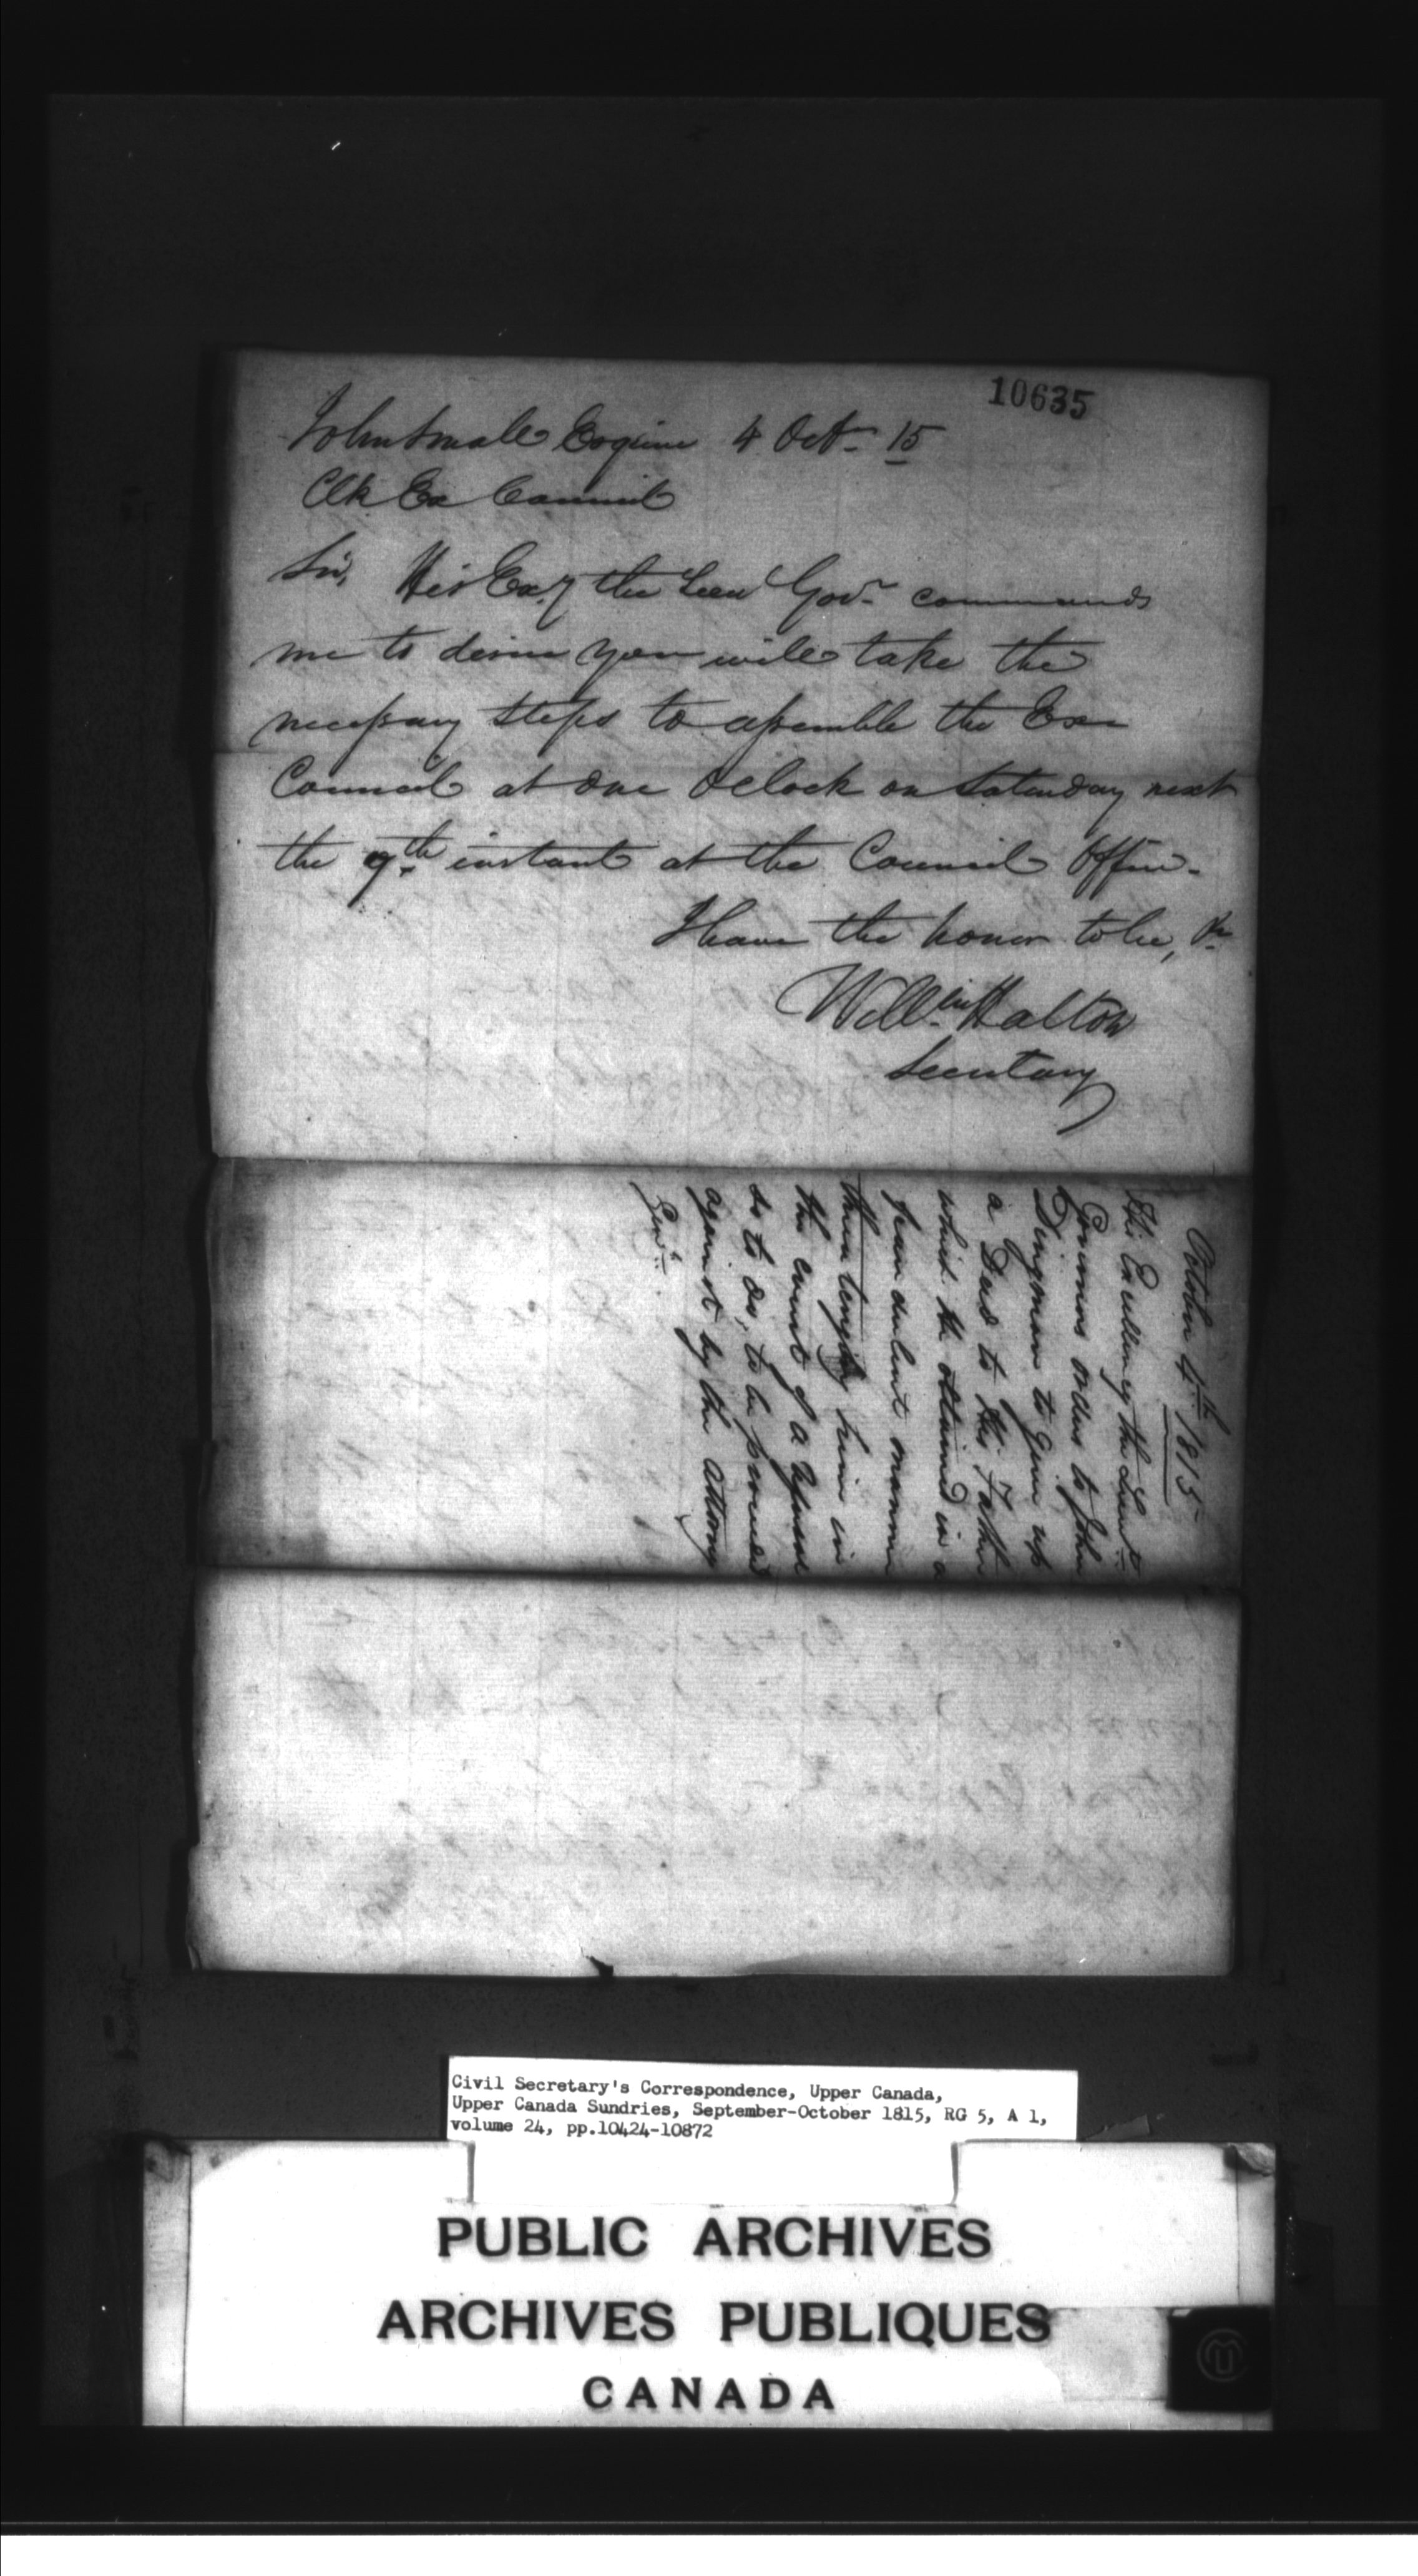 10635
John Small Esquire 4 Oct. 15
Clk Ex Council
Sir, His Exy the Lieut Govr. commands
me to desire you will take the
necessary steps to assemble the Exe
Council at One OClock on Saturday next
the 7th. instant at the Council Office.
I have the honor to be, &c
Willm. Halton
Secretary
October 4th 1815
His Excellency the Lieut.
Governors orders to John
Dingman to give up
a Deed to his Father
which he obtained in a
fraudulent manner
him in
the event of a refusal
so to do, to be proceeded
against by the Attorney
Genl.
Civil Secretary's Correspondence, Upper Canada,
Upper Canada Sundries, September-October 1815, RG 5, A 1,
volume 24, pp.10424-10872
PUBLIC ARCHIVES
ARCHIVES PUBLIQUES
CANADA